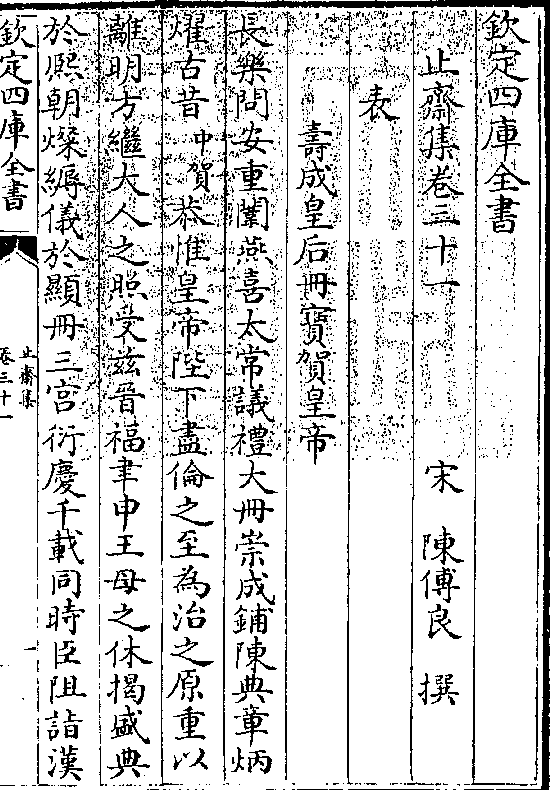 欽定四庫全書
止齋集卷三十一 宋 陳傅良 撰
表
壽成皇后冊寶賀皇帝
長樂問安重闈燕喜太常議禮大冊崇成鋪陳典章炳
燿古昔中賀恭惟皇帝陛下盡倫之至為治之原重以
離明方繼大人之照受兹晉福聿申王母之休揭盛典
於熙朝燦縟儀於顯冊三宫衍慶千載同時臣阻詣漢
欽定四庫全書
止齋集
卷三十一
一